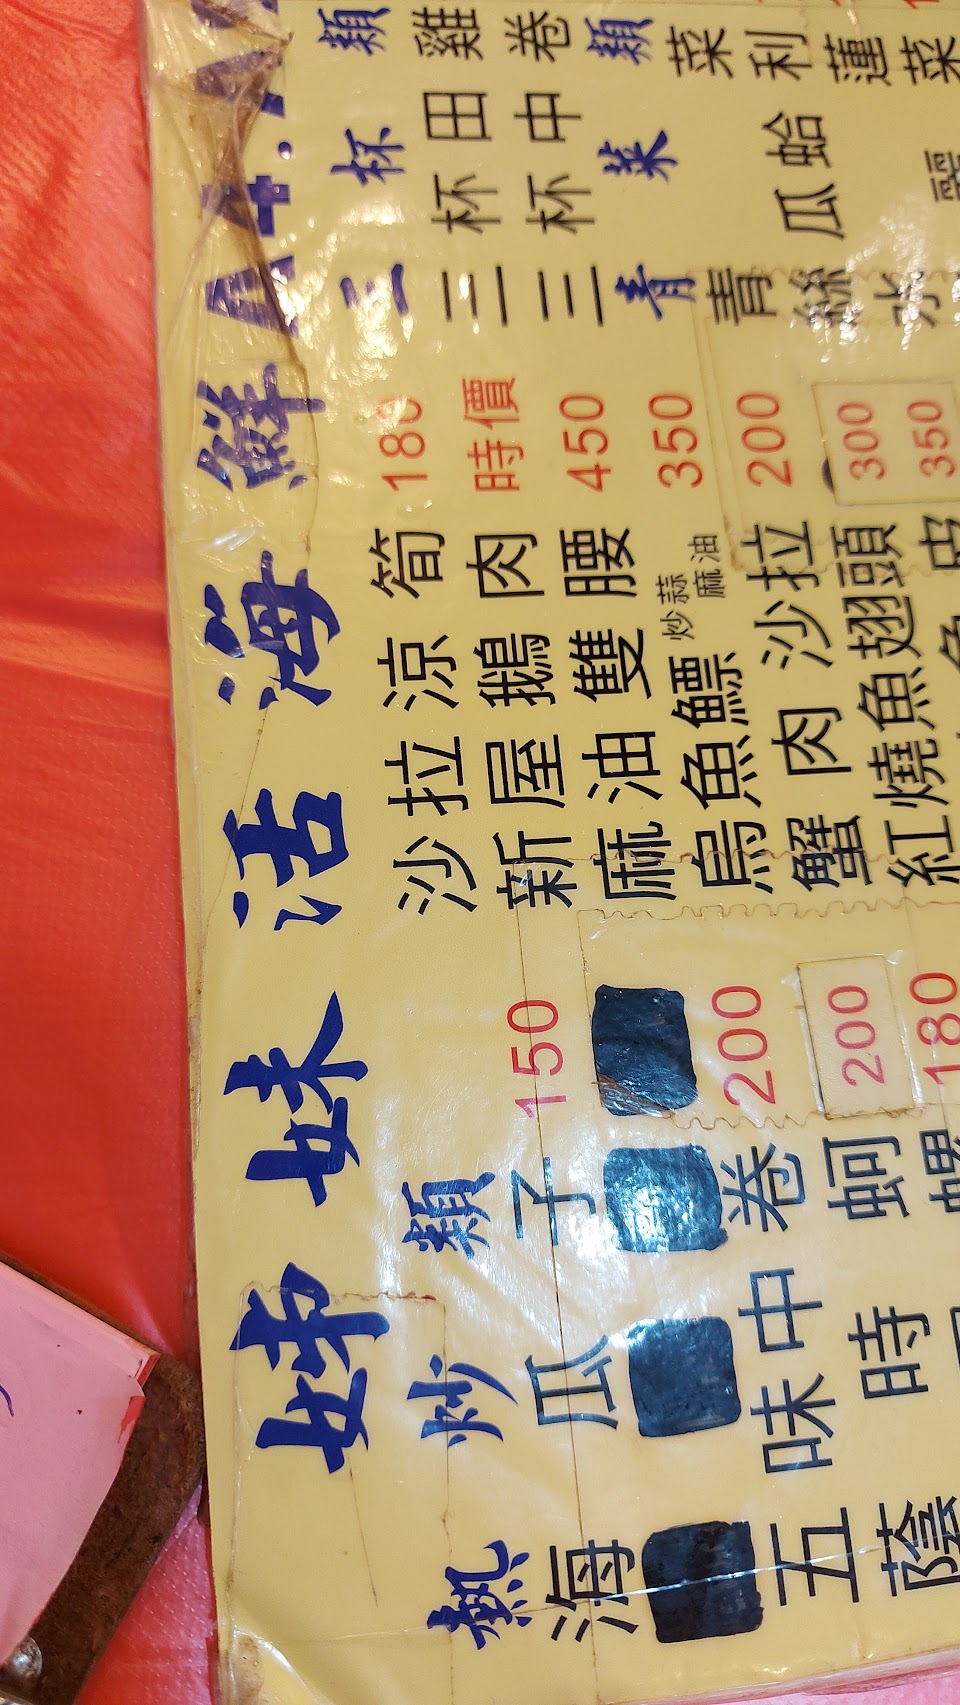 婷妹活海鮮
熱炒類 沙拉涼筍 180 三杯類
海瓜子 150 新屋鵝肉 時價 三杯田雞
麻油雙腰 450 三杯中卷
五味中卷 200 烏魚鰾 炒蒜麻油 350 青菜類
蔭時蚵 200 蟹肉沙拉 200 青菜
螺 180 紅燒魚翅頭 300 絲瓜蛤利
350 蓮
菜